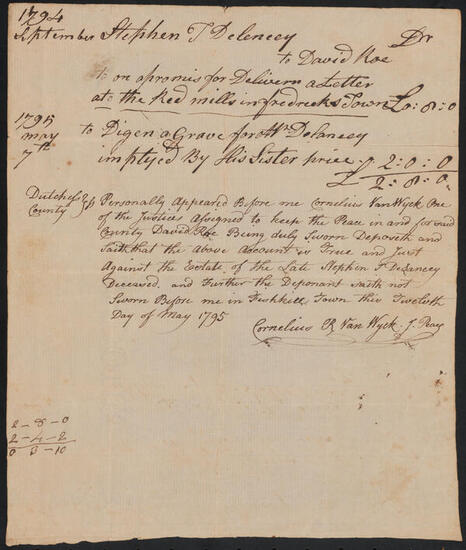 1794
September Stephen T Delencey Dr
to David Roe
to on apromis for Delivern a Letter
at to the Red mills in fredreks Town £0:8:0
1795
may to Digen a Grave for Mr Delancey
7th imployed By His Sister price 2:0:0
£ 2:8:0
Dutchess
County Personally Appeared Before me Cornelius Van Wyck One
of the Justices Assigned to keep the Peace in and for said
County David Roe Being duly Sworn Deposeth and
Saith that the above Account is True and Just
Against the Estate of the Late Stephen T Delancey
Deceased, and Further the Deponant Saith not
Sworn Before me in Fishkill Town this Twelvth
Day of May 1795
Cornelius R Van Wyck J. Peace
2-8-0
2-4-2
0 3-10